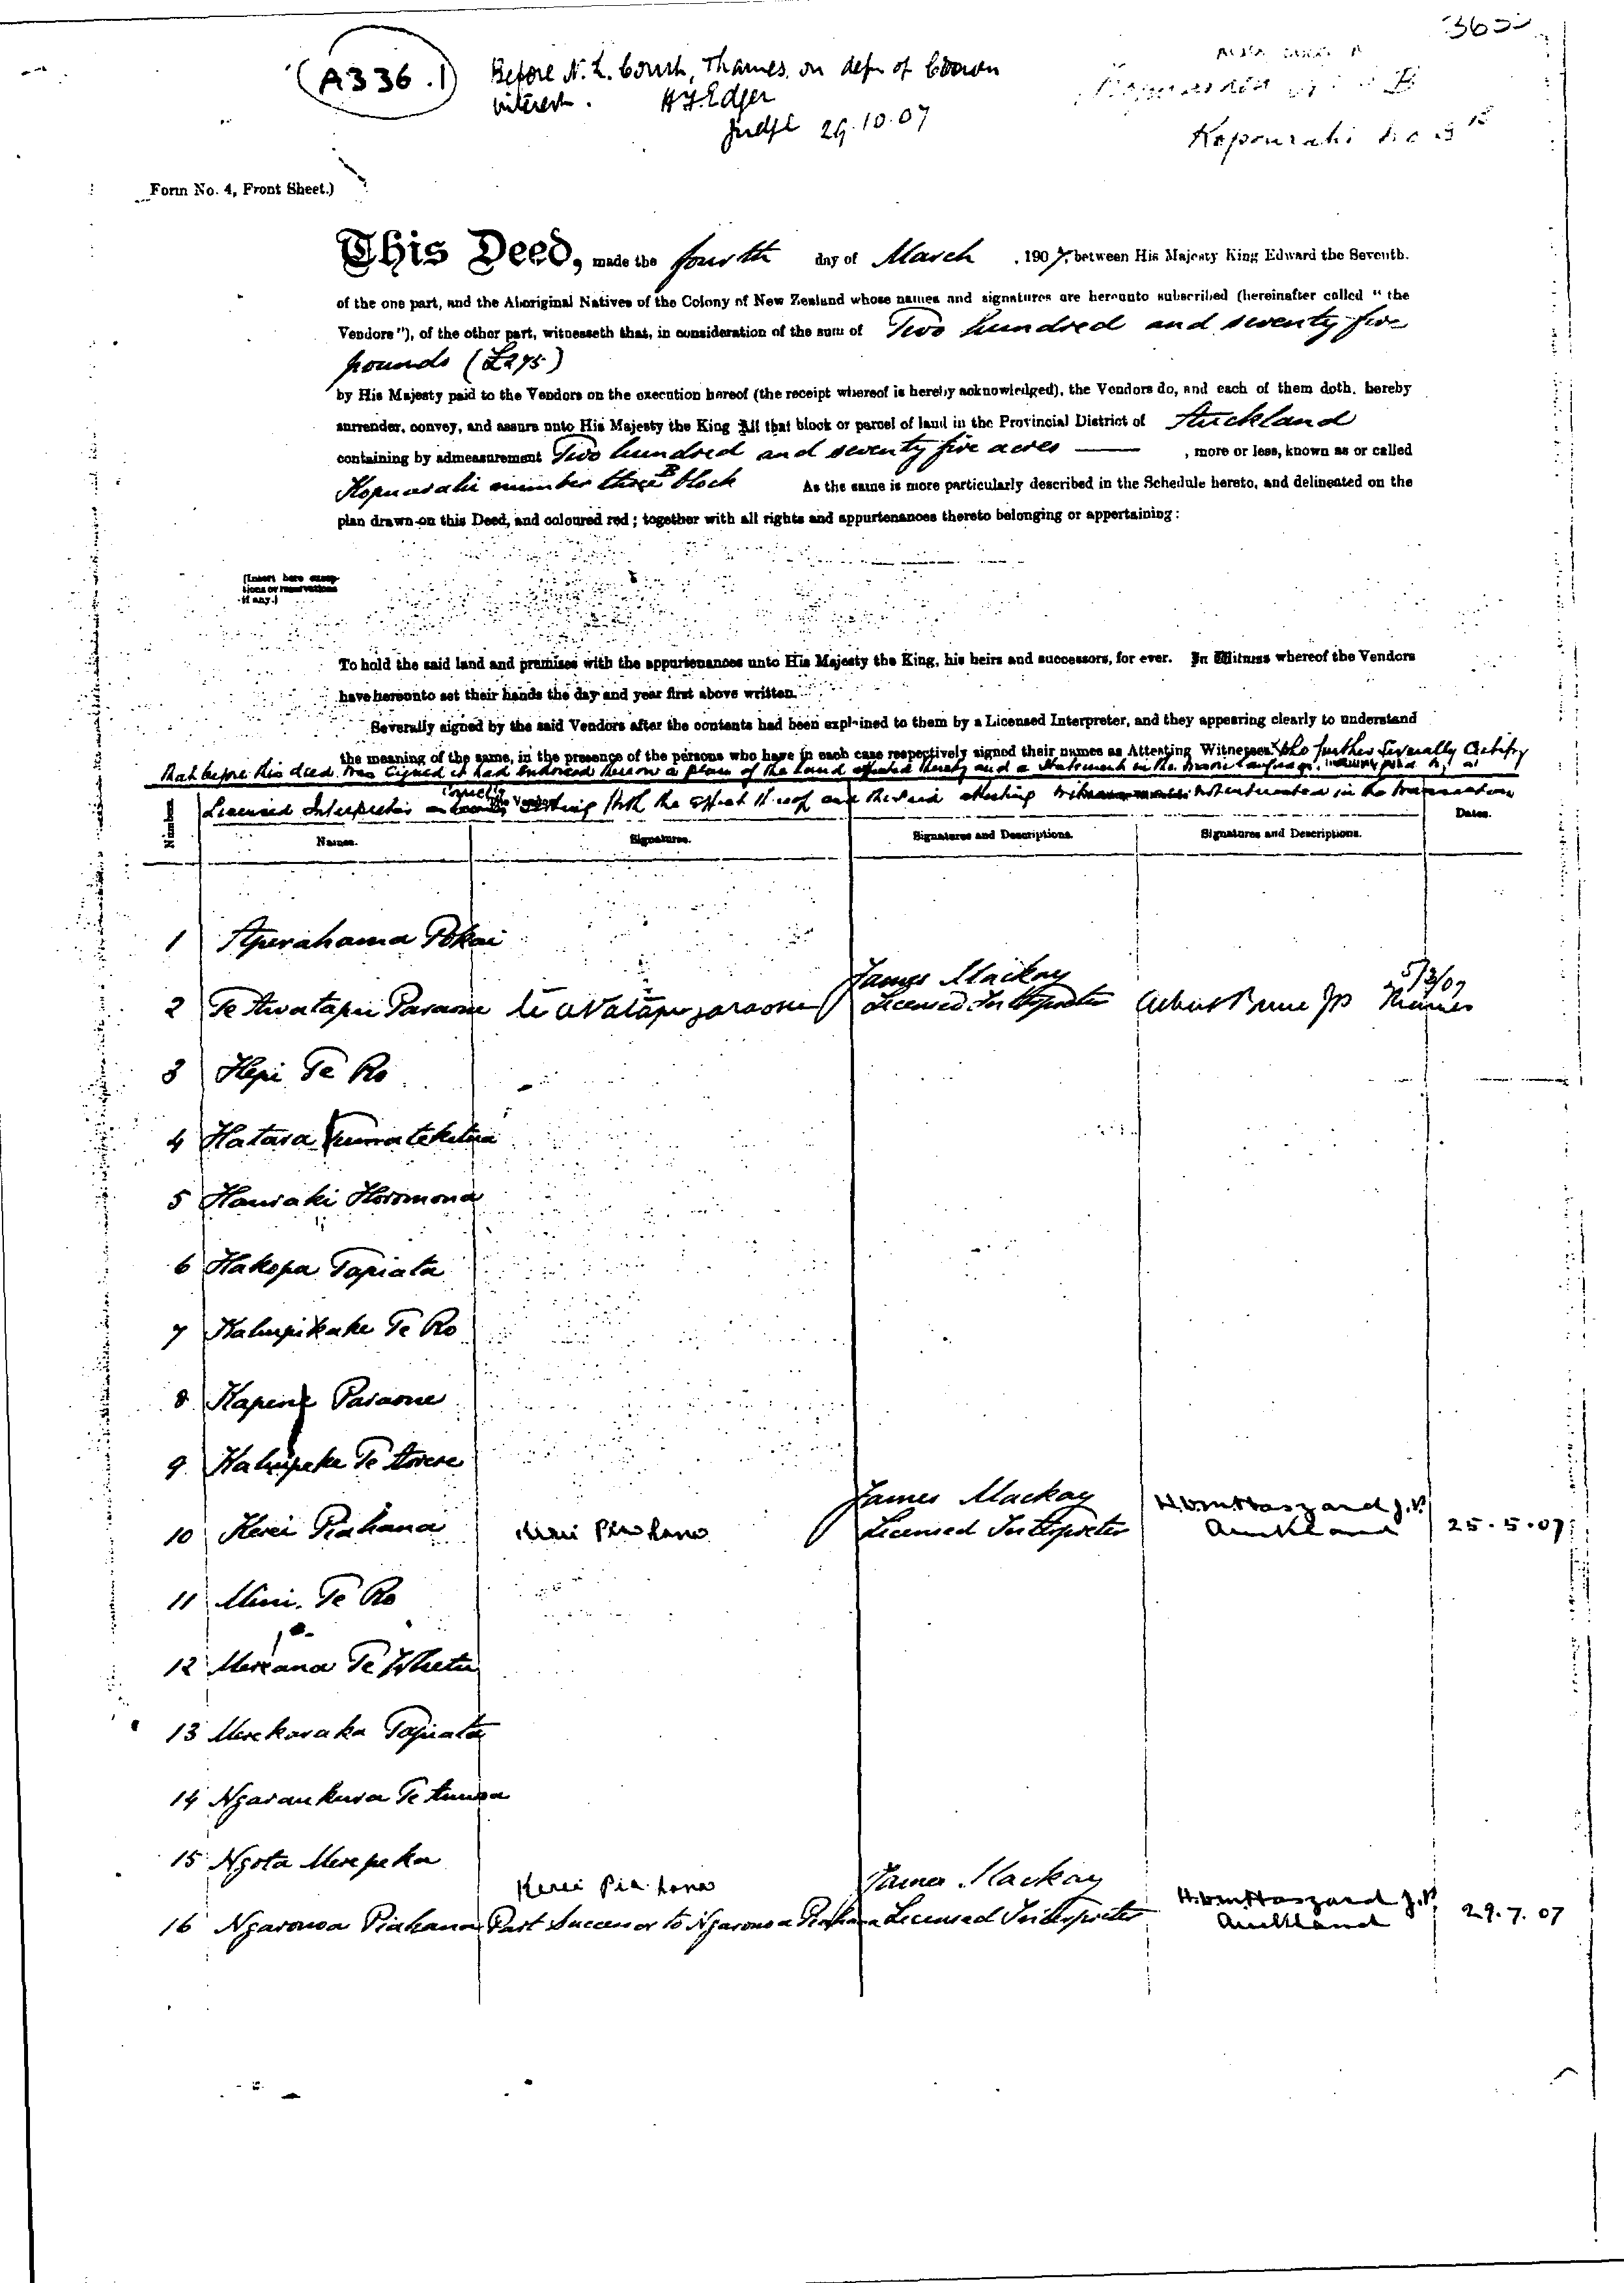 A336.1
Before N. L. Court, Thames, on defn of Crown
interest. H F Edger
Judge 29.10.07
Form No. 4, Front Sheet.)
This Deed, made the fourth day of March , 1907, between His Majesty King Edward the Seventh.
of the one part, and the Aboriginal Natives of the Colony of New Zealand whose names and signatures are hereunto subscribed (hereinafter called " the
Vendors"), of the other part, witnesseth that, in consideration of the sum of Two hundred and seventy five
pounds (£275)
by His Majesty paid to the Vendors on the execution hereof (the receipt whereof is hereby acknowledged), the Vendors do, and each of them doth, hereby
surrender, convey, and assure unto His Majesty the King All that block or parcel of land in the Provincial District of Auckland
containing by admeasurement Two hundred and seventy five acres —— , more or less, known as or called
Kopuarahi number three B block As the same is more particularly described in the Schedule hereto, and delineated on the
plan drawn on this Deed, and coloured red ; together with all rights and appurtenances thereto belonging or appertaining :
[Insert here excep-
tions or reservations
if any.]
To hold the said land and premises with the appurtenances unto His Majesty the King, his heirs and successors, for ever. In Witness whereof the Vendors
have hereunto set their hands the day and year first above written.
Severally signed by the said Vendors after the contents had been explained to them by a Licensed Interpreter, and they appearing clearly to understand
the meaning of the same, in the presence of the persons who have in each case respectively signed their names as Attesting Witnesses. who further severally certify
that before this deed was signed it had endorsed thereon a plan of the land affected thereby and a statement in the Maori language
Licensed Interpreter setting forth the effect thereof and the said attesting in the transaction
Number. Names. Signatures. Signatures and Descriptions. Signatures and Descriptions. Dates.
1 Aperahama Pokai
James Mackay 5/3/07
2 Te Awatapu Paraone te aWatapu paraone Licensed Interpreter Albert Bruce JP Thames
3 Hepi Te Ro
4 Hatara
5 Hauraki Horomona
6 Hakopa Tapiata
7 Kahupikake Te Ro
8 Kapene Paraone
9 Kahupeka Te Awere
James Mackay H Wm Haszard J.P.
10 Kerei Piahana Kerei Piahana Licensed Interpreter Auckland 25.5.07
11 Mini Te Ro
12 Mereana Te Whetu
13 Merekaraka Tapiata
14 Ngaraukura Te
15 Ngota Merepeka
Kerei Piahana James Mackay H Wm Haszard J.P.
16 Ngarowa Piahana Part Successor to Ngarowa Piahana Licensed Interpreter Auckland 29.7.07